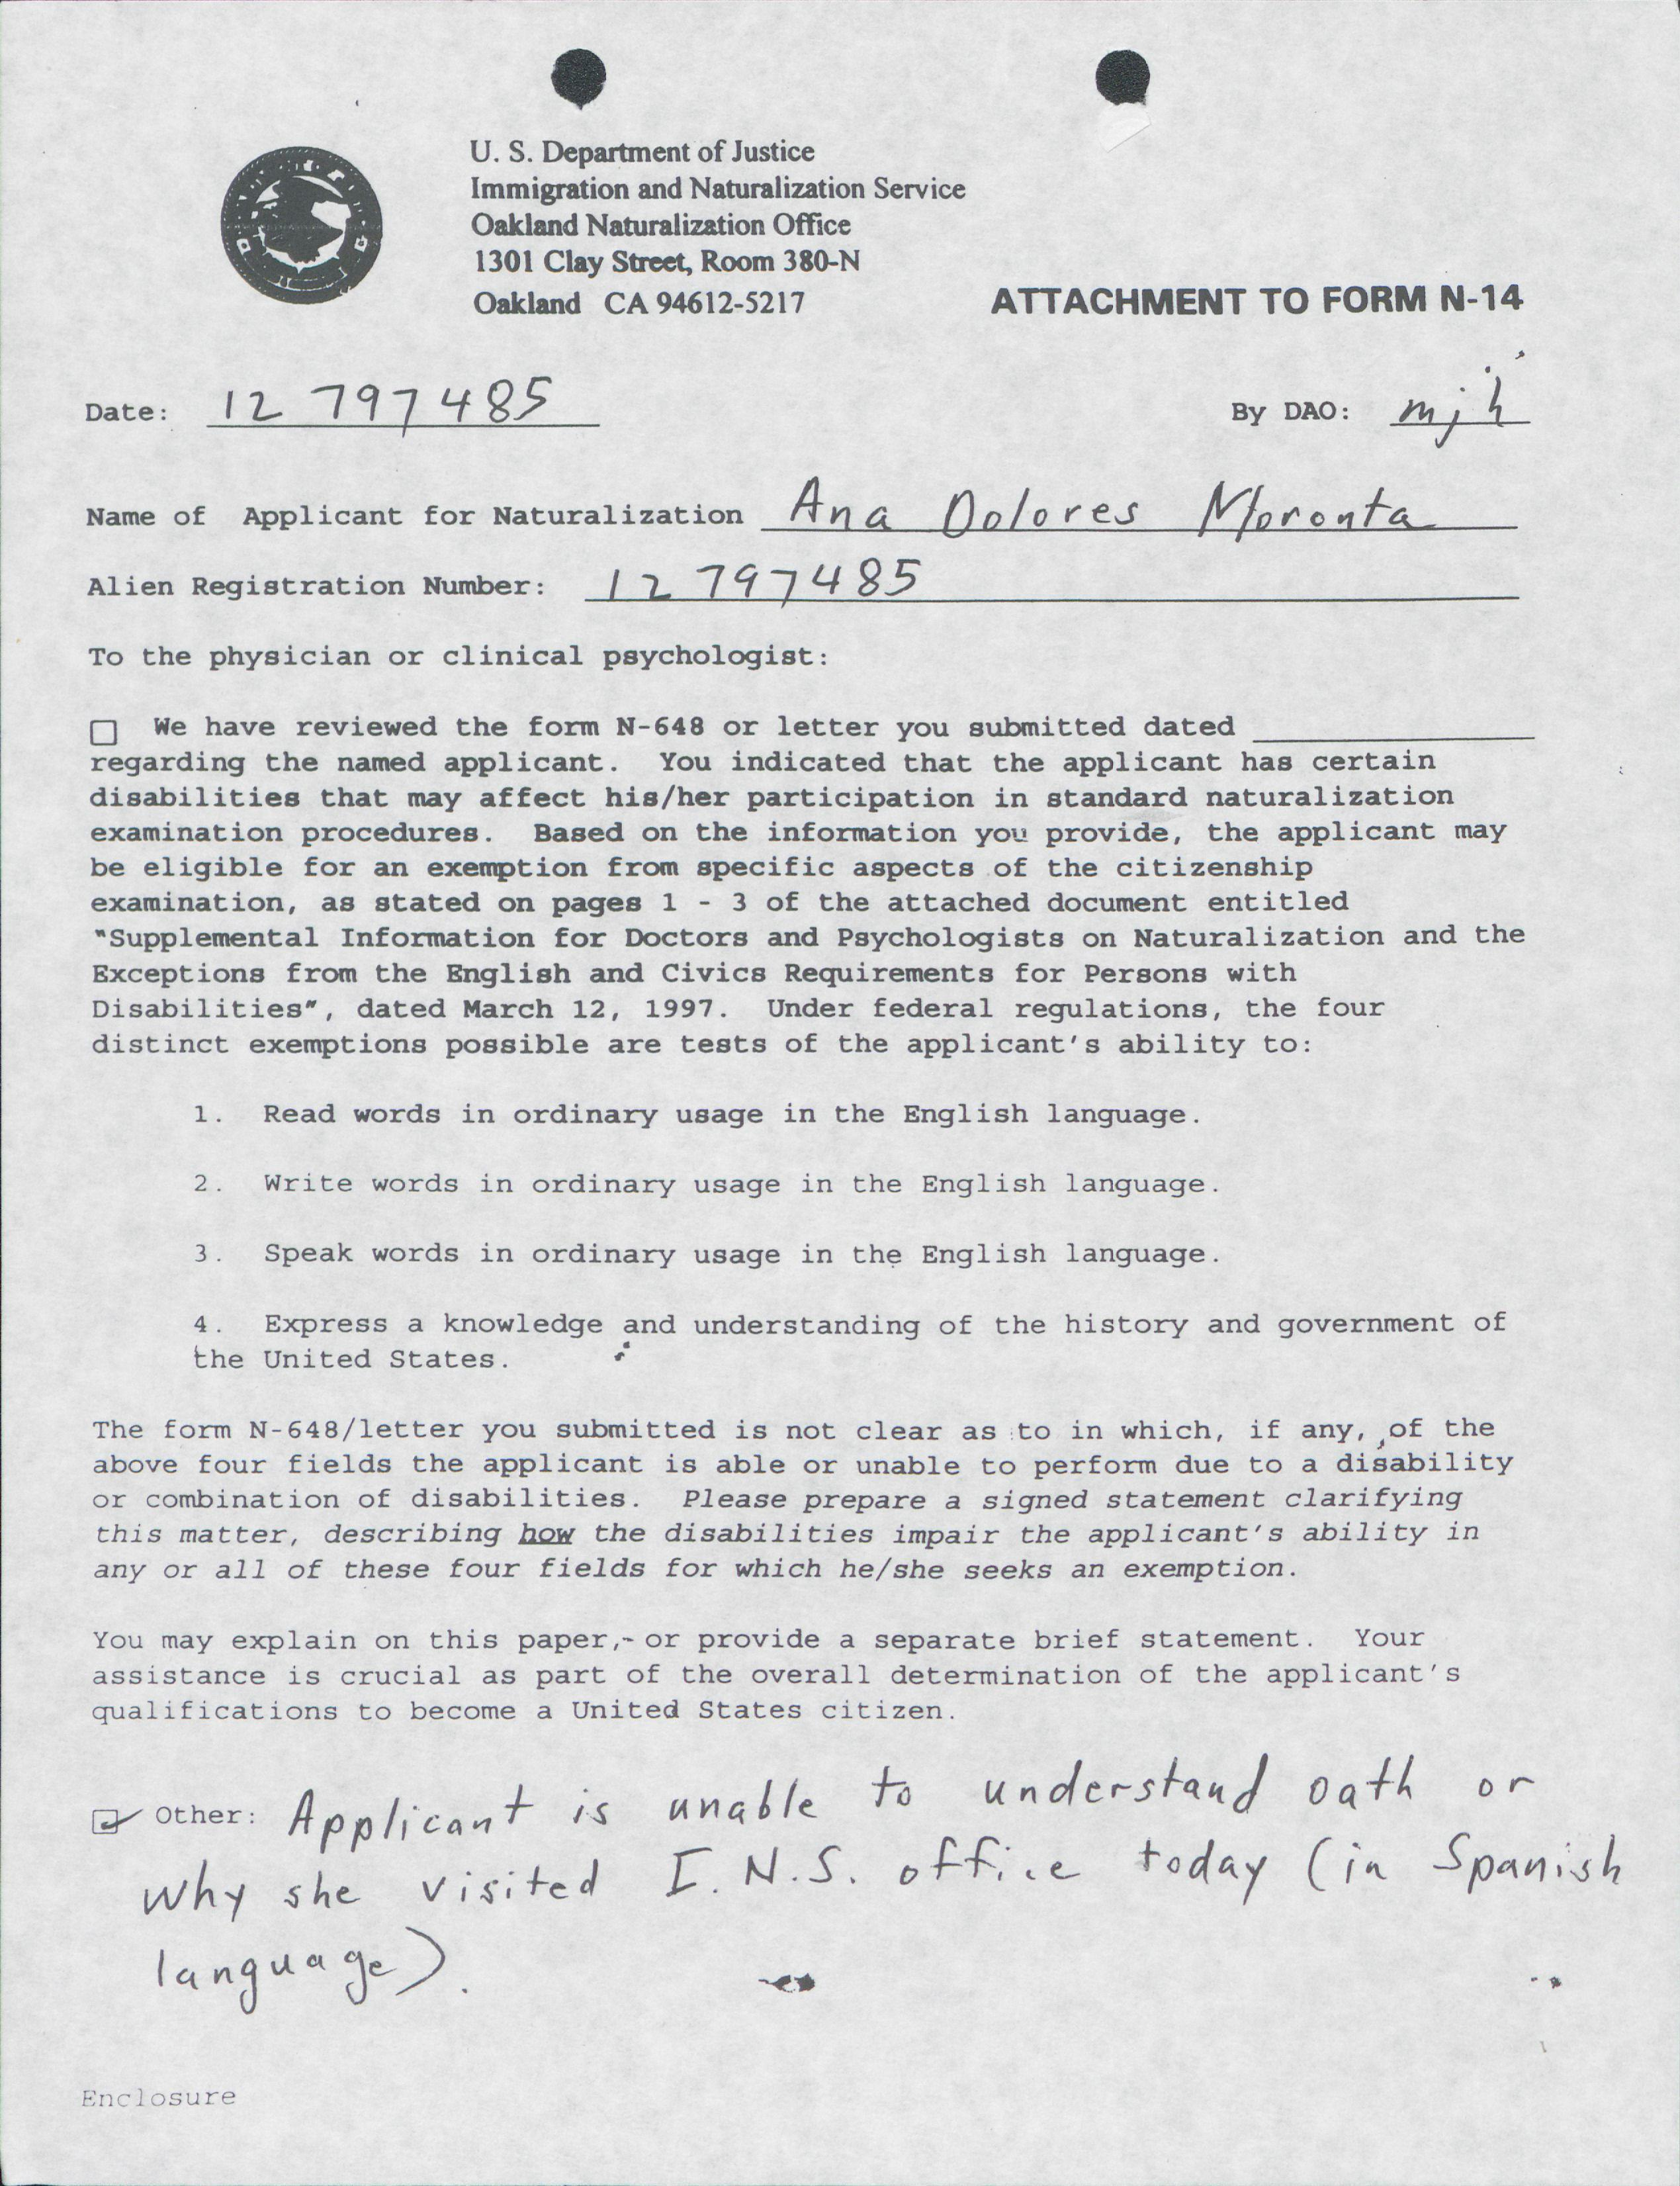 U. S. Department of Justice
Immigration and Naturalization Service
Oakland Naturalization Office
1301 Clay Street, Room 380-N
Oakland CA 94612-5217
ATTACHMENT TO FORM N-14
Date: 12 797485
By DAO: mjh
Name of Applicant for Naturalization Ana Dolores Moronta
Alien Registration Number: 12 797485
To the physician or clinical psychologist:
☐ We have reviewed the form N-648 or letter you submitted dated
regarding the named applicant. You indicated that the applicant has certain
disabilities that may affect his/her participation in standard naturalization
examination procedures. Based on the information you provide, the applicant may
be eligible for an exemption from specific aspects of the citizenship
examination, as stated on pages 1 - 3 of the attached document entitled
"Supplemental Information for Doctors and Psychologists on Naturalization and the
Exceptions from the English and Civics Requirements for Persons with
Disabilities", dated March 12, 1997. Under federal regulations, the four
distinct exemptions possible are tests of the applicant's ability to:
1. Read words in ordinary usage in the English language.
2. Write words in ordinary usage in the English language.
3. Speak words in ordinary usage in the English language.
4. Express a knowledge and understanding of the history and government of
the United States.
The form N-648/letter you submitted is not clear as to in which, if any, of the
above four fields the applicant is able or unable to perform due to a disability
or combination of disabilities. Please prepare a signed statement clarifying
this matter, describing how the disabilities impair the applicant's ability in
any or all of these four fields for which he/she seeks an exemption.
You may explain on this paper, or provide a separate brief statement. Your
assistance is crucial as part of the overall determination of the applicant's
qualifications to become a United States citizen.
☑ Other: Applicant is unable to understand oath or
why she visited I.N.S. office today (in Spanish
language).
Enclosure